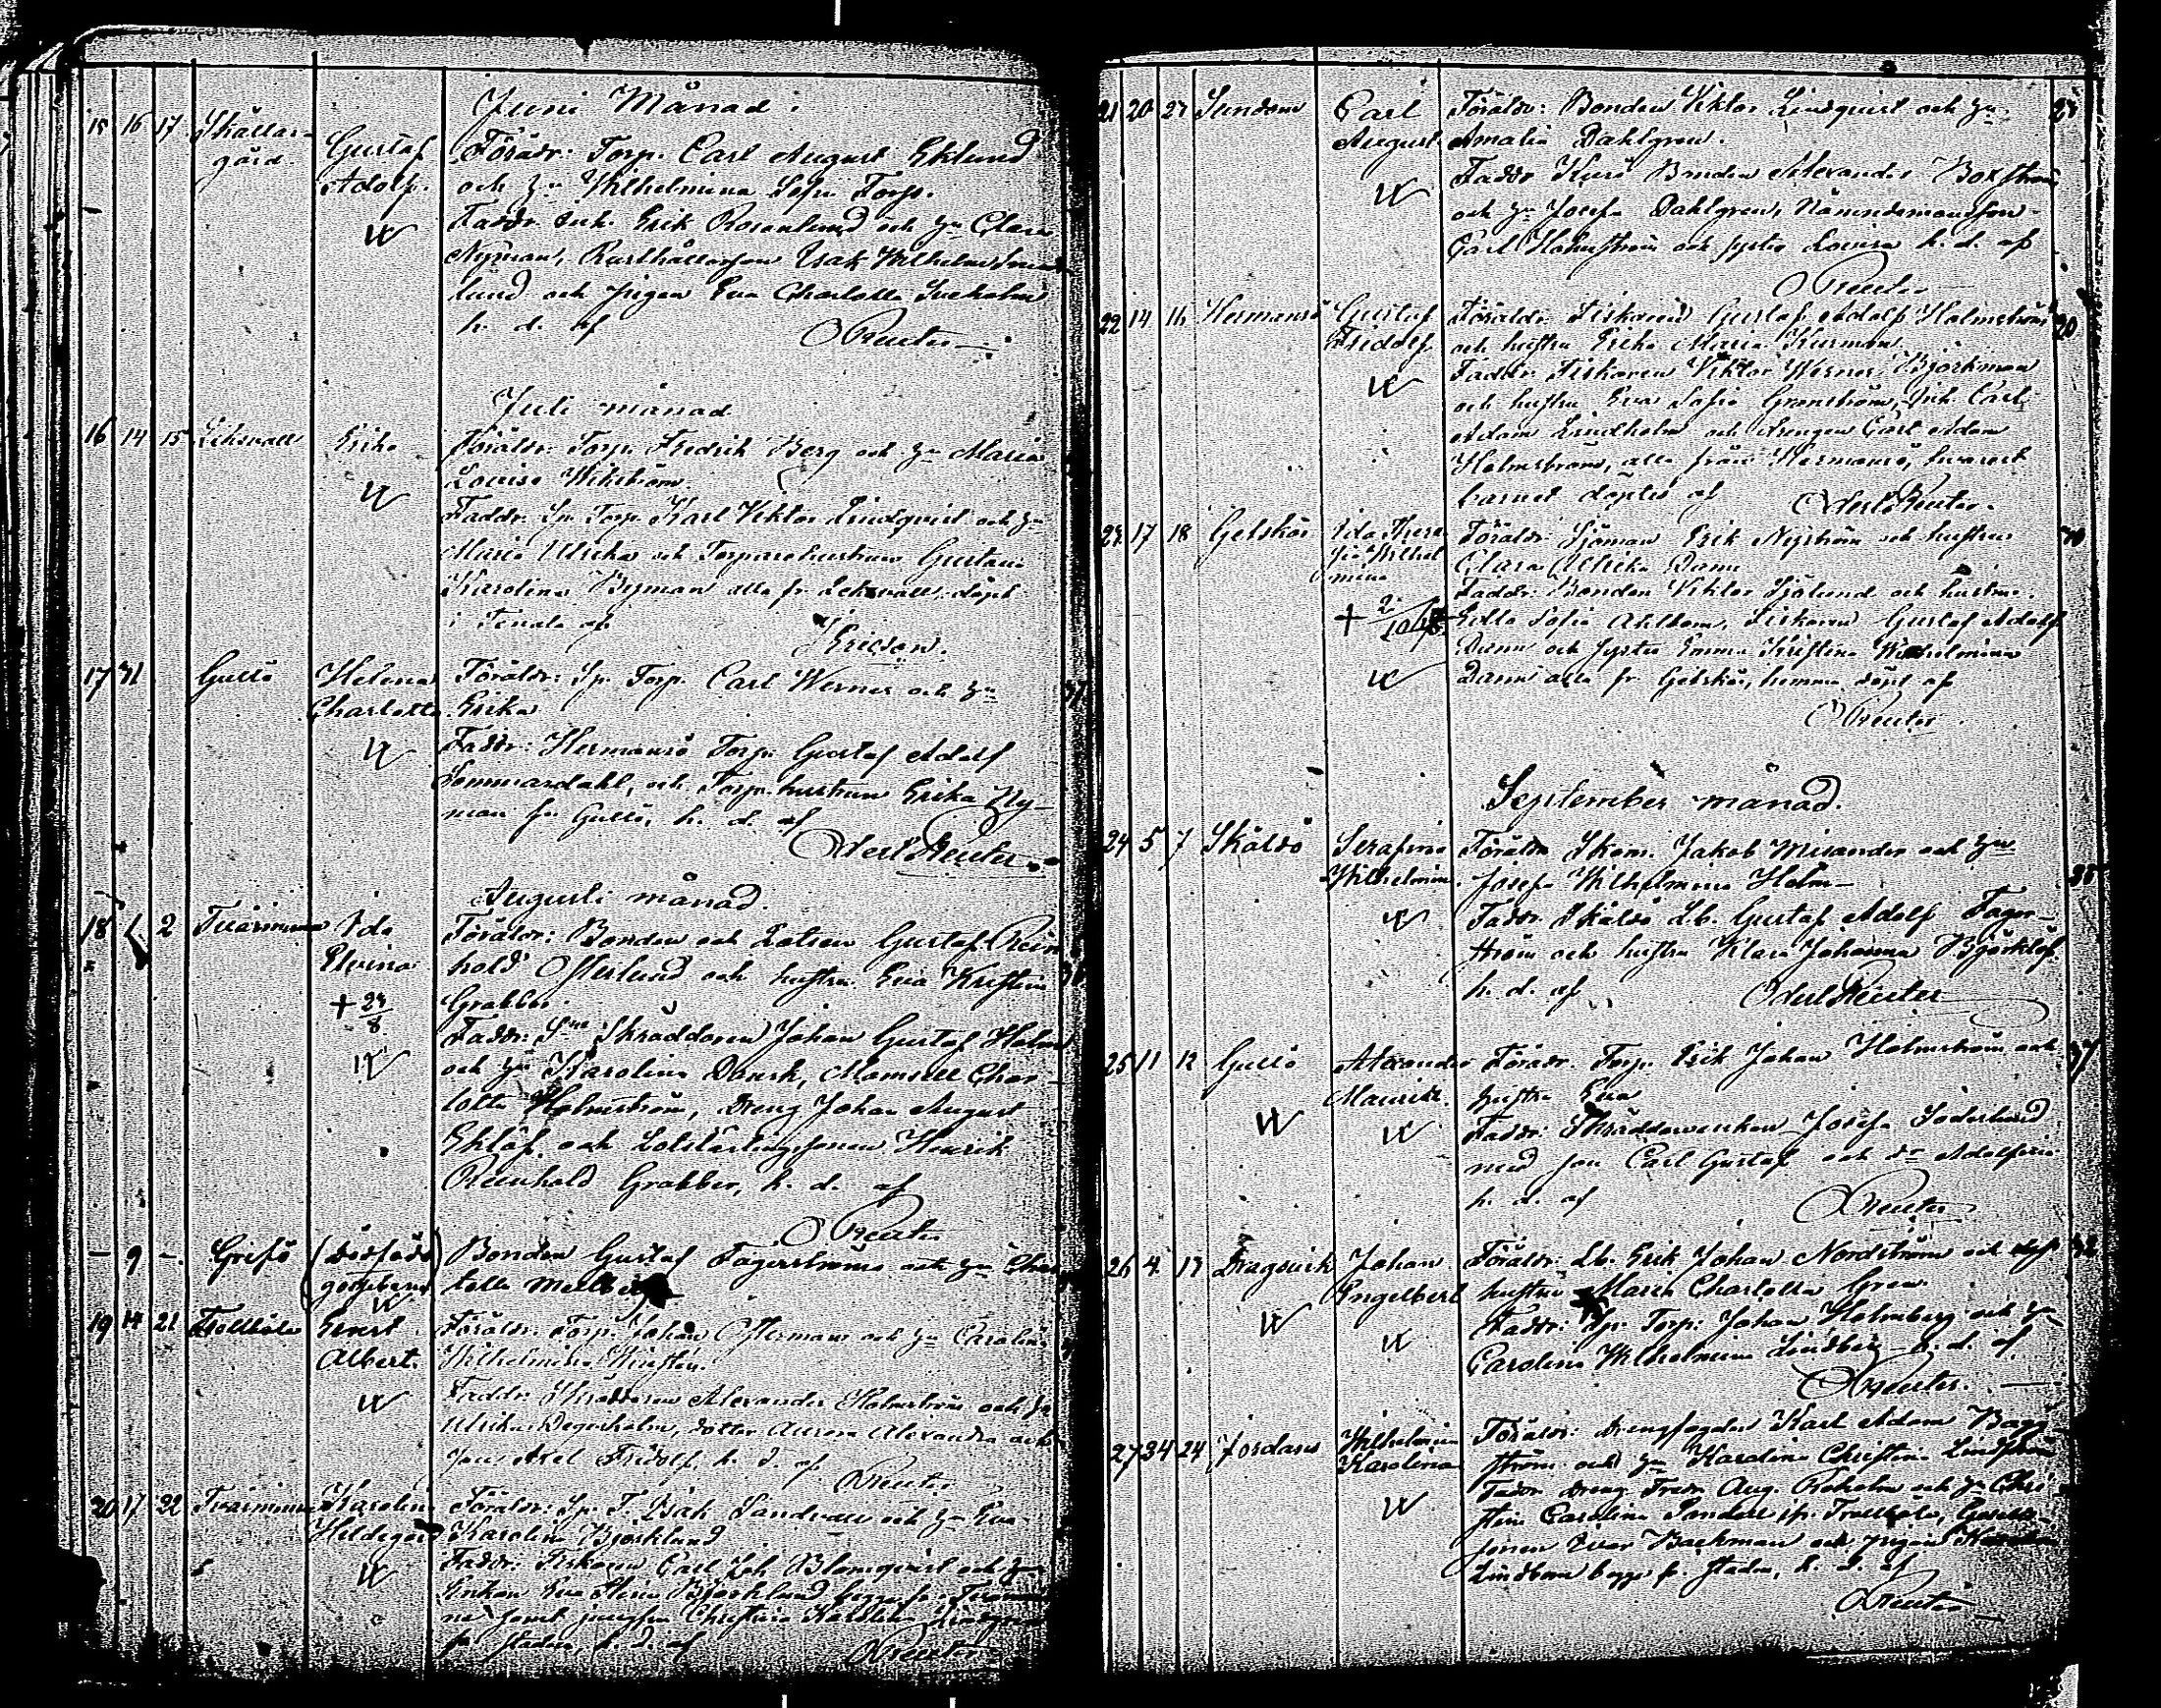 Juni Månad.
15 16 17 Skällar-
gård. Gustaf Föräldr: Torp. Carl August Eklund
Adolf. och Hu Wilhelmina Sofia Fors.
Faddr: Erik Rosenlund och Hu Clara
Nyman, Isak Wilhelm
lund och pigan Eva Charlotta
h. d. af OReuter
Juli månad.
16 14 15 Leksvall Erika Föräldr: Torp. Fredrik Berg och Hu Maria
Lovisa Wikström.
Faddr: Sp. Torp. Karl Viktor Lindqvist och Hu
Maria Ulrika och Torparehustrun Gustava
Karolina Nyman alla fr. Leksvall, döpt
i Tenala af
Ericson.
17 31 Gullö Helena Föräldr: Sp. Torp. Carl Werner och Hu 37
Charlotta Erika
Faddr: Hermansö Torp. Gustaf Adolf
Sommardahl, och Torp. hustrun Erika Ny-
man fr. Gullö, h. d. af
Odert Reuter
Augusti månad.
18 1 2 Tvärminne Ida Föräldr: Bonden och Lotsen Gustaf Rein
Elvina hold Österlund och hustru Eva Kristina
+ 24/8 Grabber.
Faddr: Skräddaren Johan Gustaf Holm
och Hu Karolina Dansk, Mamsell Char
lotta Holmström, Dreng Johan August
Eklöf och Lotslärlingssonen Henrik
Reinhold Grabber, h. d. af
OReuter
— 9 — Grisö (dödfödt Bonden Gustaf Fagerströms och Hu Char
gossebarn) lotta Mellberg
19 14 21 Trollböle Ernst Föräldr: Torp. Johan Österman och Hu Carolina
Albert. Wilhelmina
Faddr: Skräddaren Alexander Holmström och Hu
Ulrika Degerholm, dotter Aurora Alexandra och
son Axel Fridolf, h. d. af
OReuter
20 17 22 Tvärminne Karolina Föräldr: Sp. T. Isak Sandvall och Hu Eva
Hildegard Karolina Björklund
Faddr: Fiskaren Carl Joh Blomqvist och Hu
Enkan Eva Stina Björklund
samt jungfru Christina Karolina
fr. staden, h. d. af OReuter
21 20 27 Sundom Carl Föräldr: Bonden Viktor Lindqvist och Hu
August Amalia Dahlgren.
Faddr Bonden Alexander Boxström
och Hu Josefa Dahlgren, Nämndemansson
Carl Holmström och syster Lovisa h. d. af
OReuter
22 14 16 Hermansö Gustaf Föräldr: Fiskaren Gustaf Adolf Holmström 20
Fridolf och hustru Erika Maria Kurman.
Faddr: Fiskaren Viktor Werner Björkman
och hustru Eva Sofia Granström, Carl
Adam Lindholm och drengen Carl Adam
Holmström, alla från Hermansö, hvarest
barnet döptes af Odert Reuter.
23 17 18 Gebskär Ida There- Föräldr: Sjöman Erik Nyström och hustrun
sia Wilhel Clara Ulrika Dann
mina Faddr: Bonden Viktor Sjölund och hustrun
Edla Sofia Ahlbom, Fiskaren Gustaf Adolf
Dann och syster Emma Kristina Wilhelmina
Dann alla fr. Gebskär, hemma döpt af
OReuter
September månad.
24 5 7 Skåldö Serafina Föräldr Jakob Misander och Hu
Wilhelmina. Josefa Wilhelmina Holm—
Faddr. Skåldö Lb. Gustaf Adolf Fager-
ström och hustru Klara Johanna Björklöf
h. d. af Odert Reuter
25 11 12 Gullö Alexander Föräldr. Torp. Erik Johan Holmström och 37
Maurits. hustru Eva
Faddr: Skräddareenkan Josefa Söderlund
med son Carl Gustaf och dr Adolfina
h. d. af OReuter
26 4 13 Dragsvik Johan Föräldr: Lb. Erik Johan Nordström och
Engelbert hustru Maria Charlotta Gren
Faddr: Sp. Torp. Johan Holmberg och Hu
Carolina Wilhelmina Lindberg h. d. af
OReuter.
27 24 24 Jordans Wilhelmina Föräldr: Drengfogden Karl Adam Bagg
Karolina ström och Hu Karolina Christina Lindström
Faddr Dreng Fredr. Aug. Ekholm och Hu Chri
stina Carolina Sandell fr. Trollböle,
sonen Ivar Backman och pigan
Lindbom begge fr. staden, h. d. af
OReuter